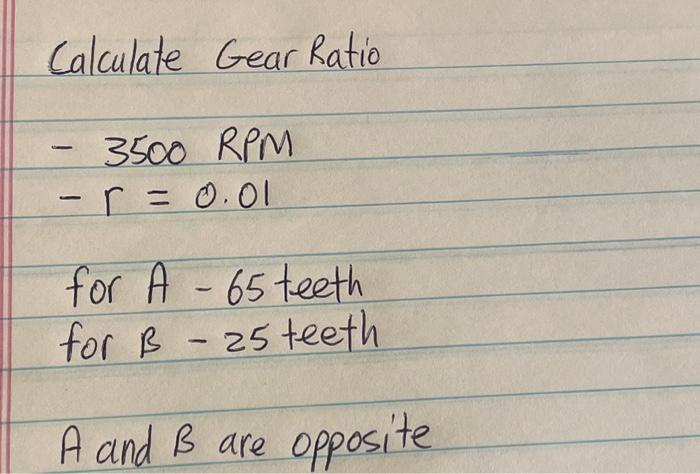 Calculate Gear Ratio
- 3500 RPM
- r = 0.01
for A - 65 teeth
for B - 25 teeth
A and B are opposite